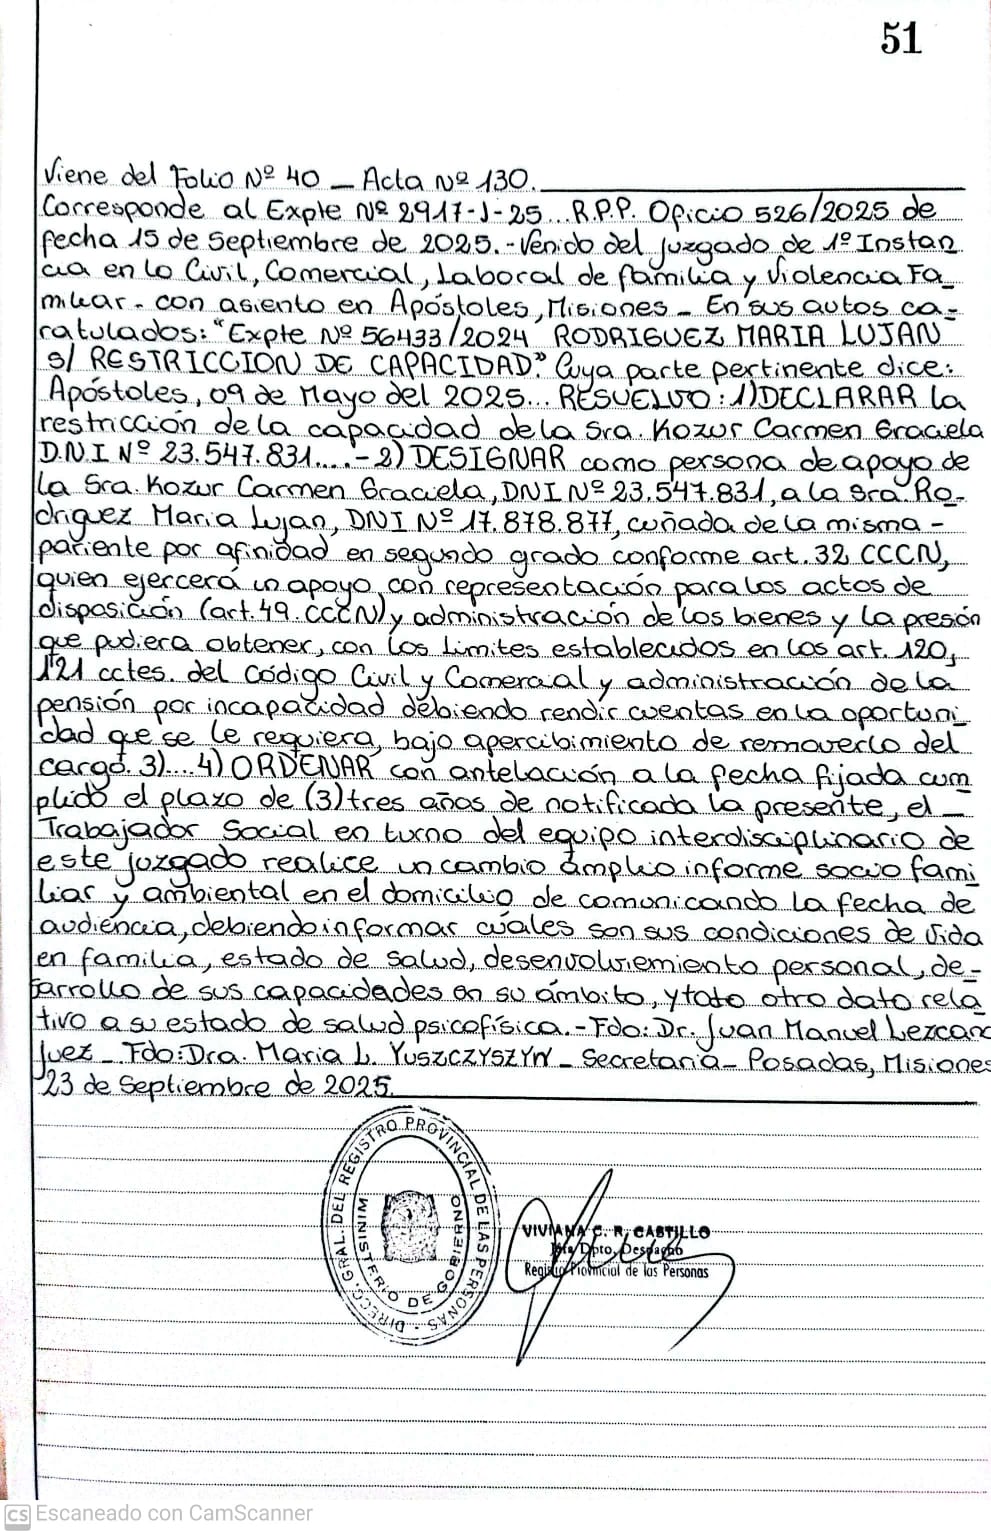 51
Viene del Folio Nº 40 _ Acta Nº 130.
Corresponde al Expte Nº 2917-J-25... R.P.P. Oficio 526/2025 de
fecha 15 de Septiembre de 2025.- Venido del juzgado de 1º Instan
cia en lo Civil, Comercial, Laboral de familia y Violencia Fa_
miliar - con asiento en Apóstoles, Misiones _ En sus autos ca-
ratulados: "Expte Nº 56433/2024 RODRIGUEZ MARIA LUJAN
S/ RESTRICCION DE CAPACIDAD". Cuya parte pertinente dice:
Apóstoles, 09 de Mayo del 2025... RESUELVO: 1) DECLARAR la
restricción de la capacidad de la Sra. Kozur Carmen Graciela
D.N.I Nº 23.547.831....- 2) DESIGNAR como persona de apoyo de
la Sra. Kozur Carmen Graciela, DNI Nº 23.547.831, a la Sra. Ro-
driguez Maria Lujan, DNI Nº 17.878.877, cuñada de la misma -
pariente por afinidad en segundo grado conforme art. 32 CCCN,
quien ejercerá un apoyo con representación para los actos de
disposición (art. 49. CCCN) y administración de los bienes y la presión
que pudiera obtener, con los limites establecidos en los art. 120,
121 cctes. del Código Civil y Comercial y administración de la
pensión por incapacidad debiendo rendir cuentas en la oportuni
dad que se le requiera, bajo apercibimiento de removerlo del
cargo. 3)....4) ORDENAR con antelación a la fecha fijada cum
plido el plazo de (3) tres años de notificada la presente, el _
Trabajador Social en turno del equipo interdisciplinario de
este juzgado realice un cambio amplio informe socio fami
liar y ambiental en el domicilio de comunicando la fecha de
audiencia, debiendo informar cuales son sus condiciones de vida
en familia, estado de salud, desenvolviemiento personal, de-
sarrollo de sus capacidades en su ámbito, y toto otro dato rela
tivo a su estado de salud psicofísica.- Fdo: Dr. Juan Manuel Lezcano
Juez _ Fdo: Dra. Maria L. YUSZCZYSZYN _ Secretaria _ Posadas, Misiones
23 de Septiembre de 2025.
DIRECC. GRAL. DEL REGISTRO PROVINCIAL DE LAS PERSONAS
MINISTERIO DE GOBIERNO
VIVIANA C. R. CASTILLO
Jefa Dpto. Despacho
Registro Provincial de las Personas
CS Escaneado con CamScanner